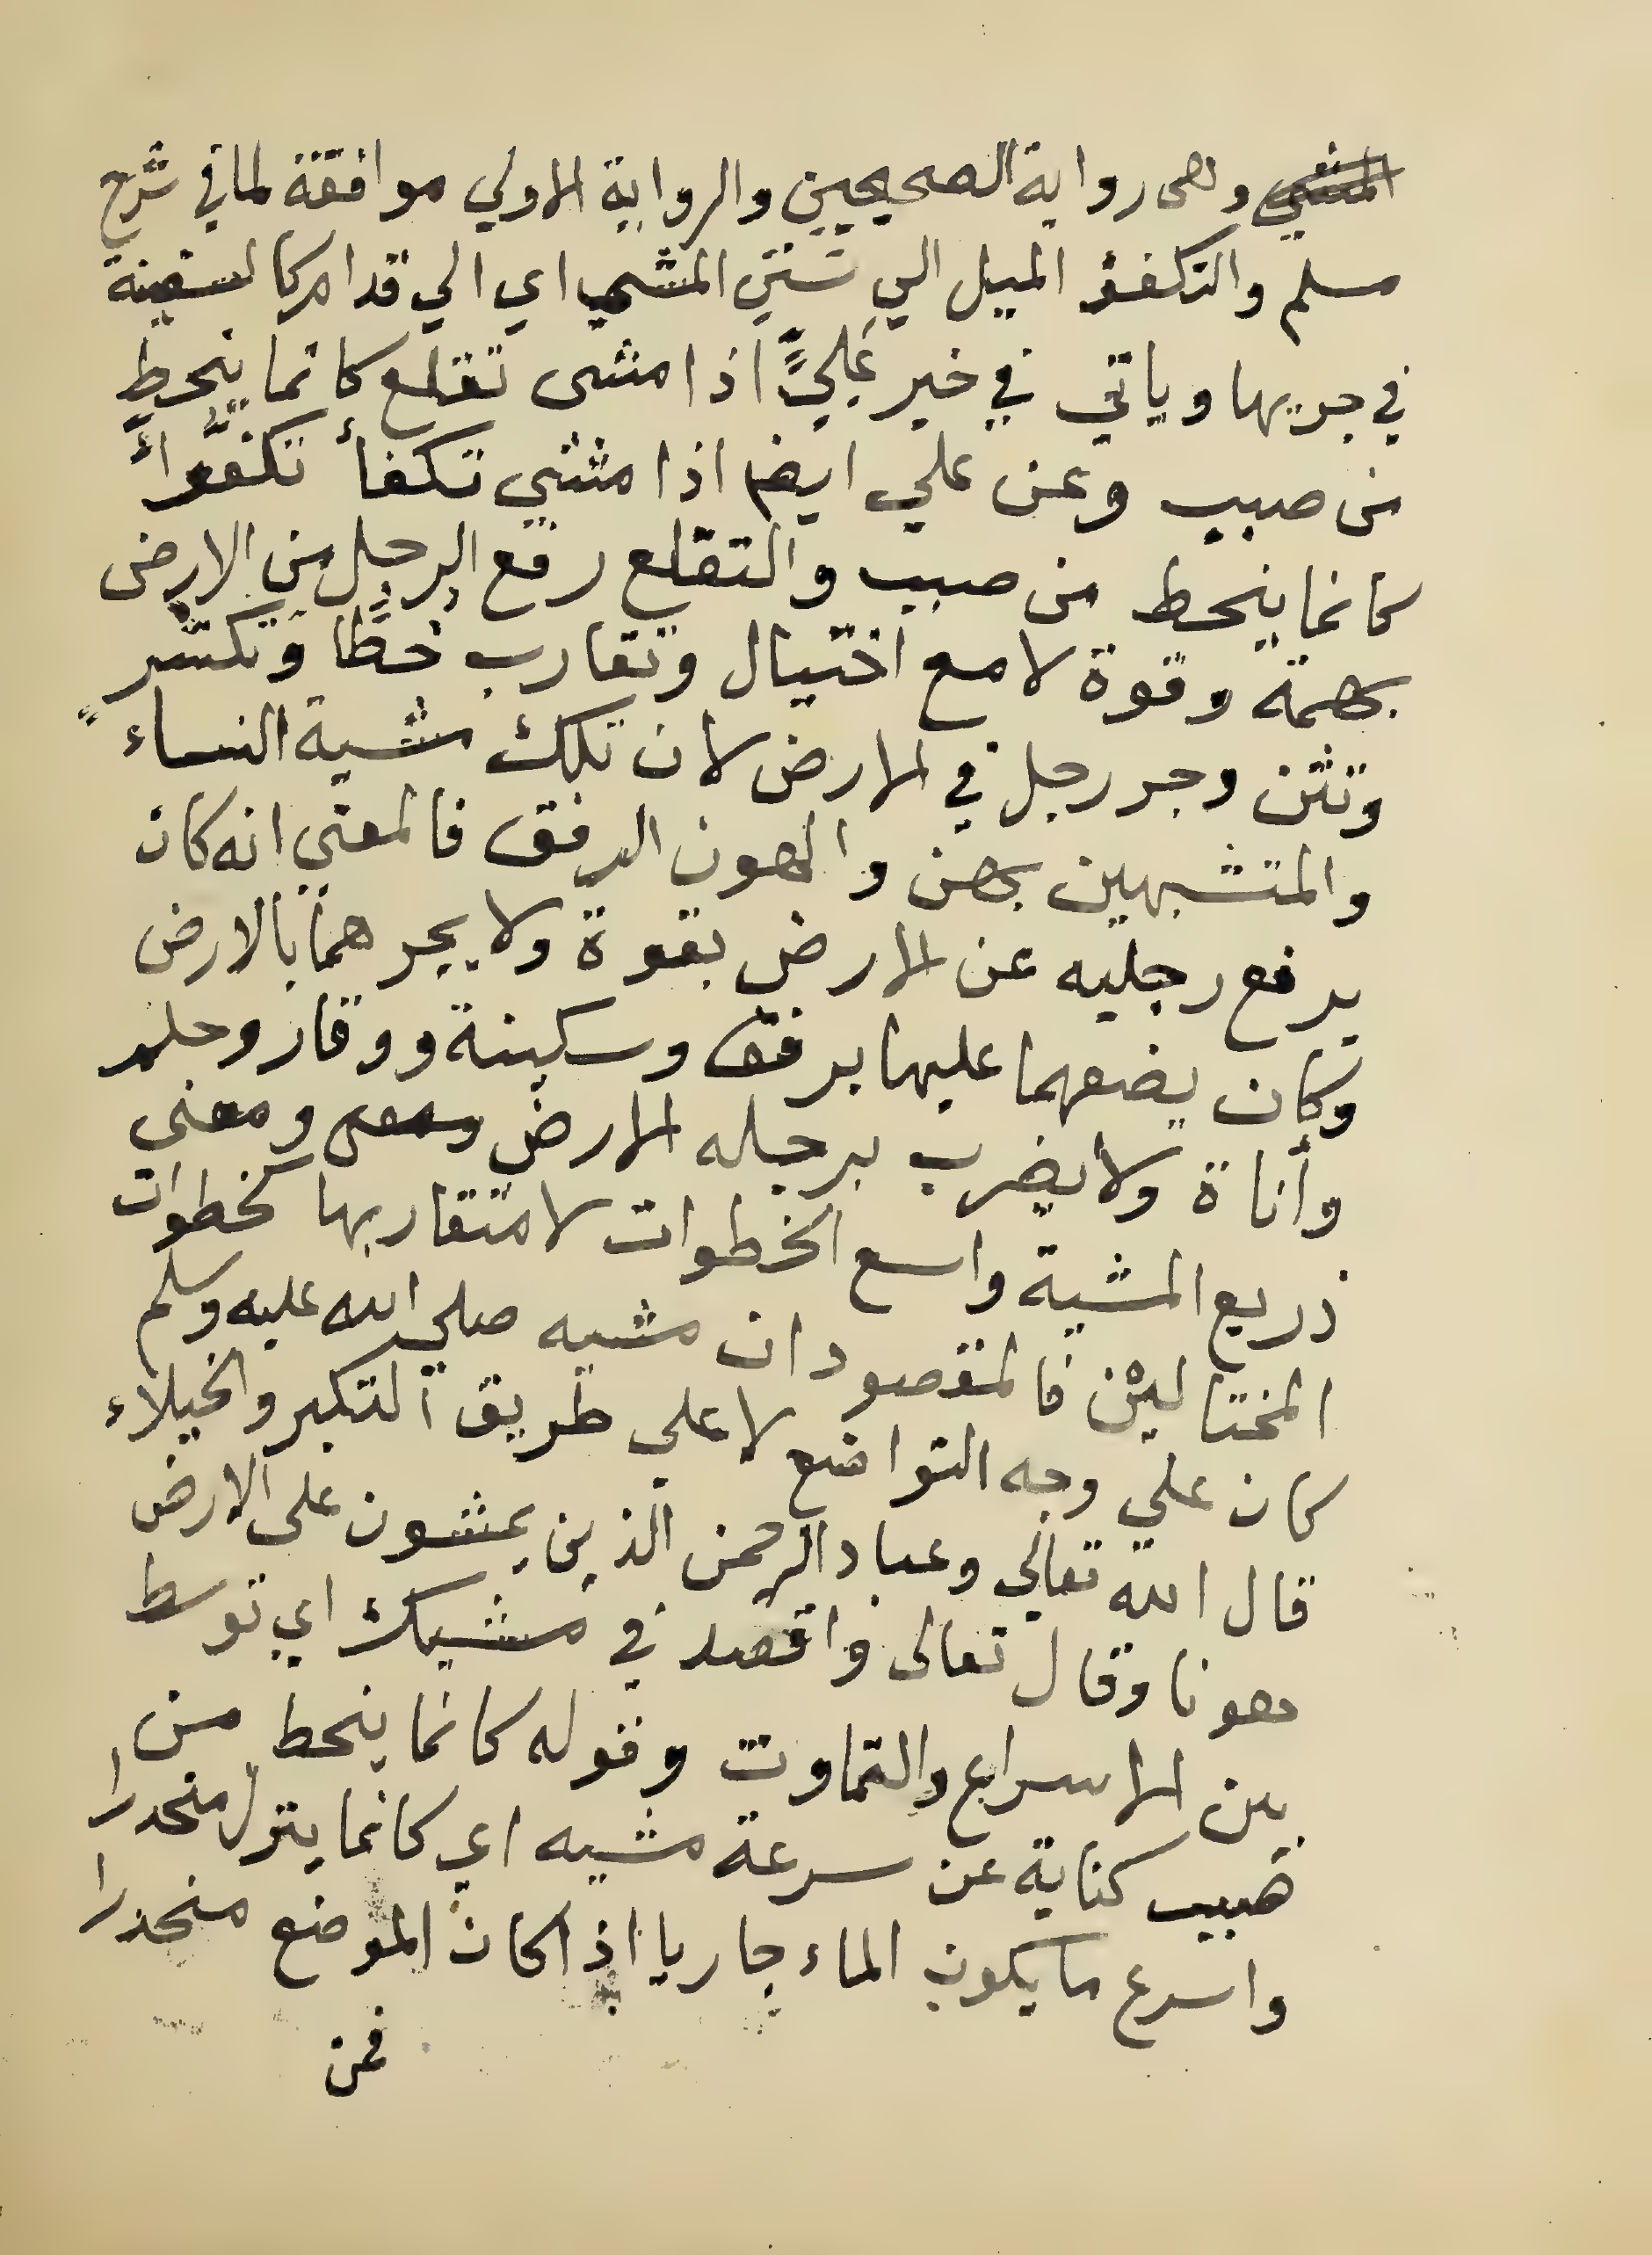 المشي وهى رواية الصحيحين والرواية الاولي موافقة لما في شرح
مسلم والتكفؤ الميل الي سنن المشي اي الي قدام كالسفينة
في جريها وياتي في خبر عليٍّ اذا مشى تقلع كانما ينحط
من صبب وعن علي ايضا اذا مشي تكفأ تكفؤاً
كانما ينحط من صبب والتقلع رفع الرِجل من الارض
بهمة وقوة لا مع اختيال وتقارب خطًا وتكسّر
وتثن وجر رجل في الارض لان تلك مشية النساء
والمتشبهين بهن والهون الرفق فالمعنى انه كان
يرفع رجليه عن الارض بقوة ولا يجرهما بالارض
وكان يضعهما عليها برفق وسكينة ووقار وحلم
وأناة ولا يضرب برجله الارض ومعنى ومعني
ذريع المشية واسع الخطوات لا متقاربها كخطوات
المختالين فالمقصود ان مشيه صلي الله عليه وسلم
كان علي وجه التواضع لا علي طريق التكبر والخيلاء
قال الله تعالي وعباد الرحمن الذين يمشون على الارض
هونا وقال تعالى واقصد في مشيك اي توسط
بين الاسراع والتماوت وقوله كانما ينحط من
صبب كناية عن سرعة مشيه اي كانما ينزل منحدرا
واسرع ما يكون الماء جاريا اذا كان الموضع منحدرا
فمن